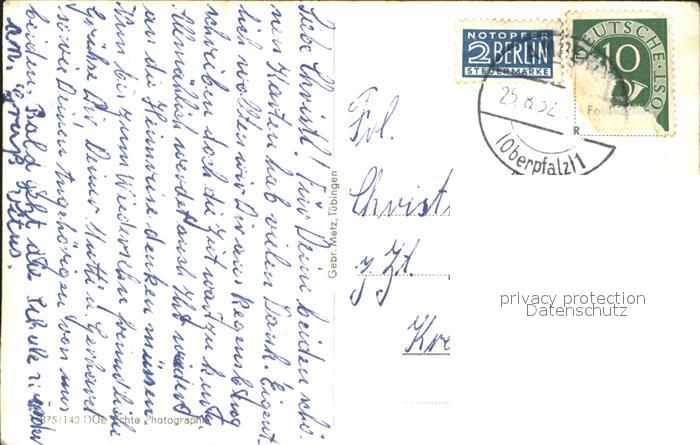 Liebe Christl! Für Deine beiden schö-
nen Karten hab vielen Dank. Eigent-
lich wollten wir Dir aus Regensburg
schreiben doch die Zeit war zu kurz.
Allmählich werdet auch Ihr wieder
an die Heimreise denken müssen.
Nun bis zum Wiedersehn freundliche
Grüße Dir, Deiner Mutti u. Gerhard
sowie Deinen Angehörigen von uns
beiden. Bald geht die Schule
an. Gruß
NOTOPFER
2 BERLIN
STEUERMARKE
DEUTSCHE POST
10
25.8.52
(Oberpfalz) 1
Frl.
Christ
z. Zt.
Kre
Gebr. Metz, Tübingen
privacy protection
Datenschutz
875/140 DOe Echte Photographie